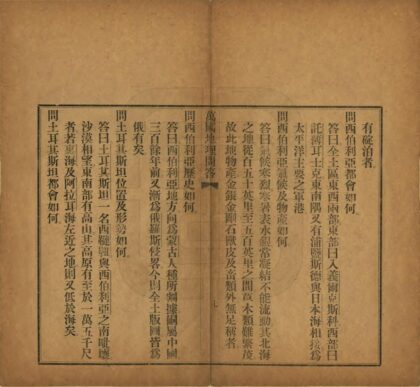 有礮治者
問西伯利亞都會如何
答曰全土區東西兩部東部曰義爾克斯科西部曰
託穆耳士克東南隅又有浦鹽斯德與日本海相接為
太平洋主要之軍港
問西伯利亞氣候及物產如何
答曰氣候寒烈寒暑表水銀常凝結不能流動其北海
之地從百五十英里至五百英里之間草木類難繁茂
故此地物產金銀金剛石獸皮及畜類外無足稱者
萬國地理問答
七
問西伯利亞歷史如何
答曰西伯利亞地方向為蒙古人種所割據嗣屬中國
三百餘年前又漸為俄羅斯侵畧今則全土版圖皆為
俄有矣
問土耳其斯坦位置及形勢如何
答曰土耳其斯坦一名西韃靼與西伯利亞之南毗連
沙漠相望東南部有高山其高原有至於一萬五千尺
者若裏海及阿拉耳海左近之地則又低於海矣
問土耳其斯坦都會如何